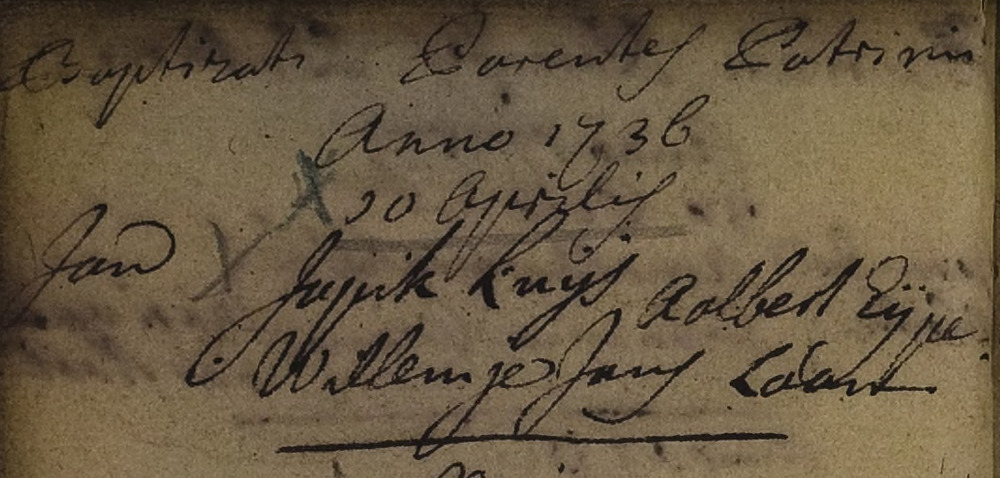 Baptizati Parentes Patrini
Anno 1736
20 Aprilis
Jan Japik Kuijs Aalbert Eijpe
Willemje Jans